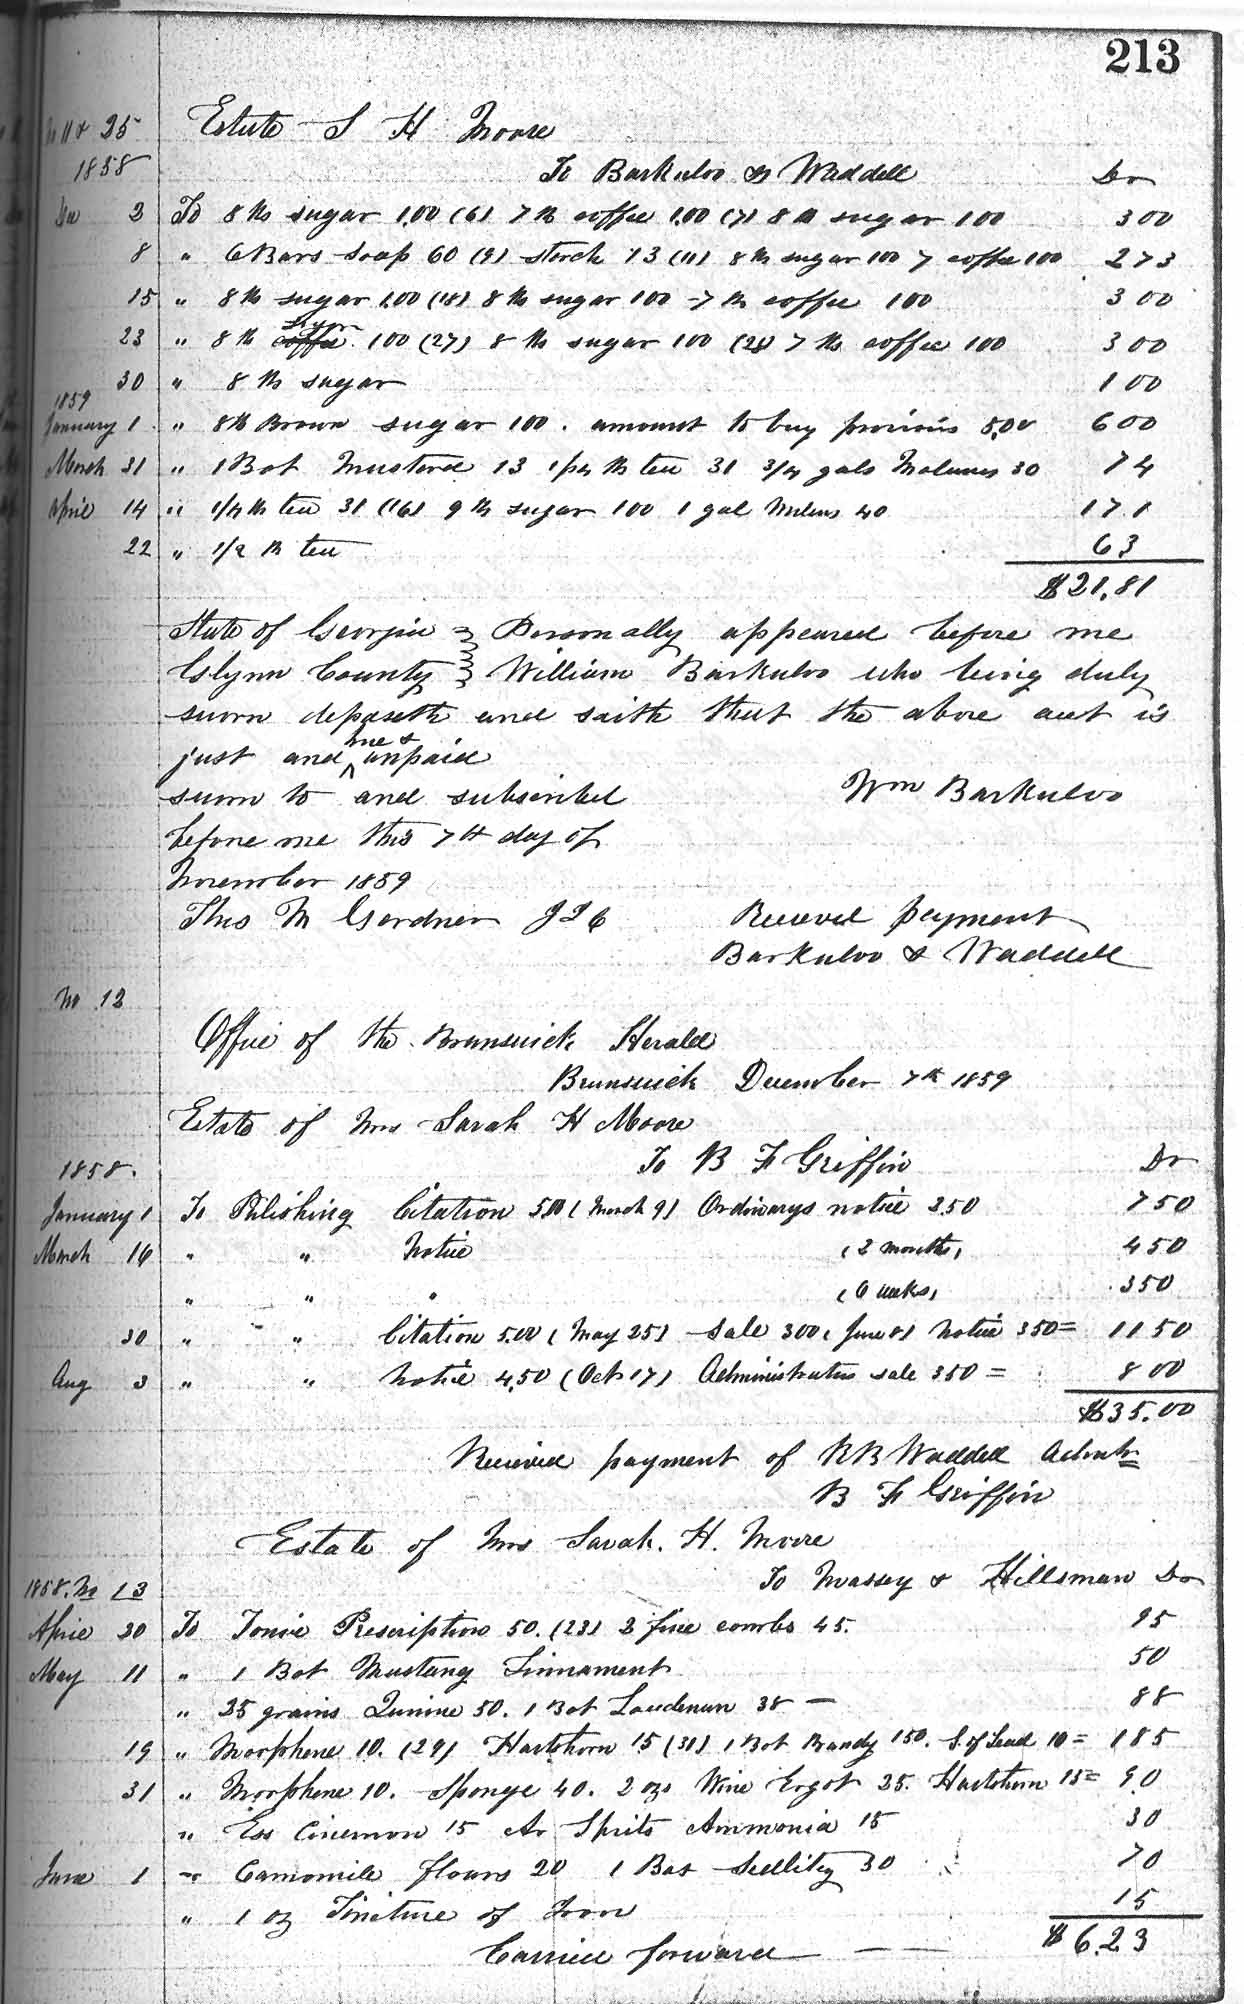 213
No 11 & 25 Estate S H Moore
1858 To Barkuloo & Waddell Dr
Dec 2 To 8 lb sugar 1,00 (6) 7 lb coffee 1,00 (7) 8 lb sugar 100 3 00
8 " 6 Bars soap 60 (9) starch 13 (11) 8 lb sugar 100 7 coffee 100 2 73
15 " 8 lb sugar 1,00 (18) 8 lb sugar 100 7 lb coffee 100 3 00
23 " 8 lb sugar 100 (27) 8 lb sugar 100 (28) 7 lb coffee 100 3 00
30 " 8 lb sugar 1 00
1859
January 1 " 8 lb Brown sugar 100. amount to buy provisions 5,00 6 00
March 31 " 1 Bot Mustard 13 1/4 lb tea 31 3/4 gals Molasses 30 74
April 14 " 1/4 lb tea 31 (16) 9 lb sugar 100 1 gal Molass 40 1 7 1
22 " 1/2 lb tea 63
$21.81
State of Georgia Personally appeared before me
Glynn County William Barkuloo who being duly
sworn deposeth and saith that the above acct is
just and true & unpaid
sworn to and subscribed Wm Barkuloo
before me this 7th day of
November 1859
Thos M Gardner J I C Received payment
Barkuloo & Waddell
No 12
Office of the Brunswick Herald
Brunswick December 7th 1859
Estate of Mrs Sarah H Moore
1858. To B F Griffin Dr
January 1 To Publishing Citation 5,00 (March 9) Ordinarys notice 2.50 7 50
March 16 " " Notice (2 months) 4 50
" " " (6 weeks) 3 50
30 " " Citation 5.00 (May 25) sale 300 (June 8) Notice 350 = 11 50
Aug 3 " " Notice 4,50 (Oct 17) Administrators sale 350 = 8 00
$35.00
Received payment of R B Waddell Admtr
B F Griffin
Estate of Mrs Sarah. H. Moore
1858. No 13 To Massey & Hillsman Dr
April 30 To Tonic Prescription 50. (23) 2 fine combs 45. 95
May 11 " 1 Bot Mustang Linnament 50
" 25 grains Quinine 50. 1 Bot Laudenum 38 — 88
19 " Morphene 10. (29) Hartshorn 15 (31) 1 Bot Brandy 150. S. of Lead 10 = 1 85
31 " Morphene 10. Sponge 40. 2 ozs Wine Ergot 25. Hartshorn 15 = 90
" Ess Cinemon 15 Ar Sprits Ammonia 15 30
June 1 " Camomile flours 20 1 Box Seidlitz 30 70
" 1 oz Tincture of Iron 15
$6.23
Carried forward